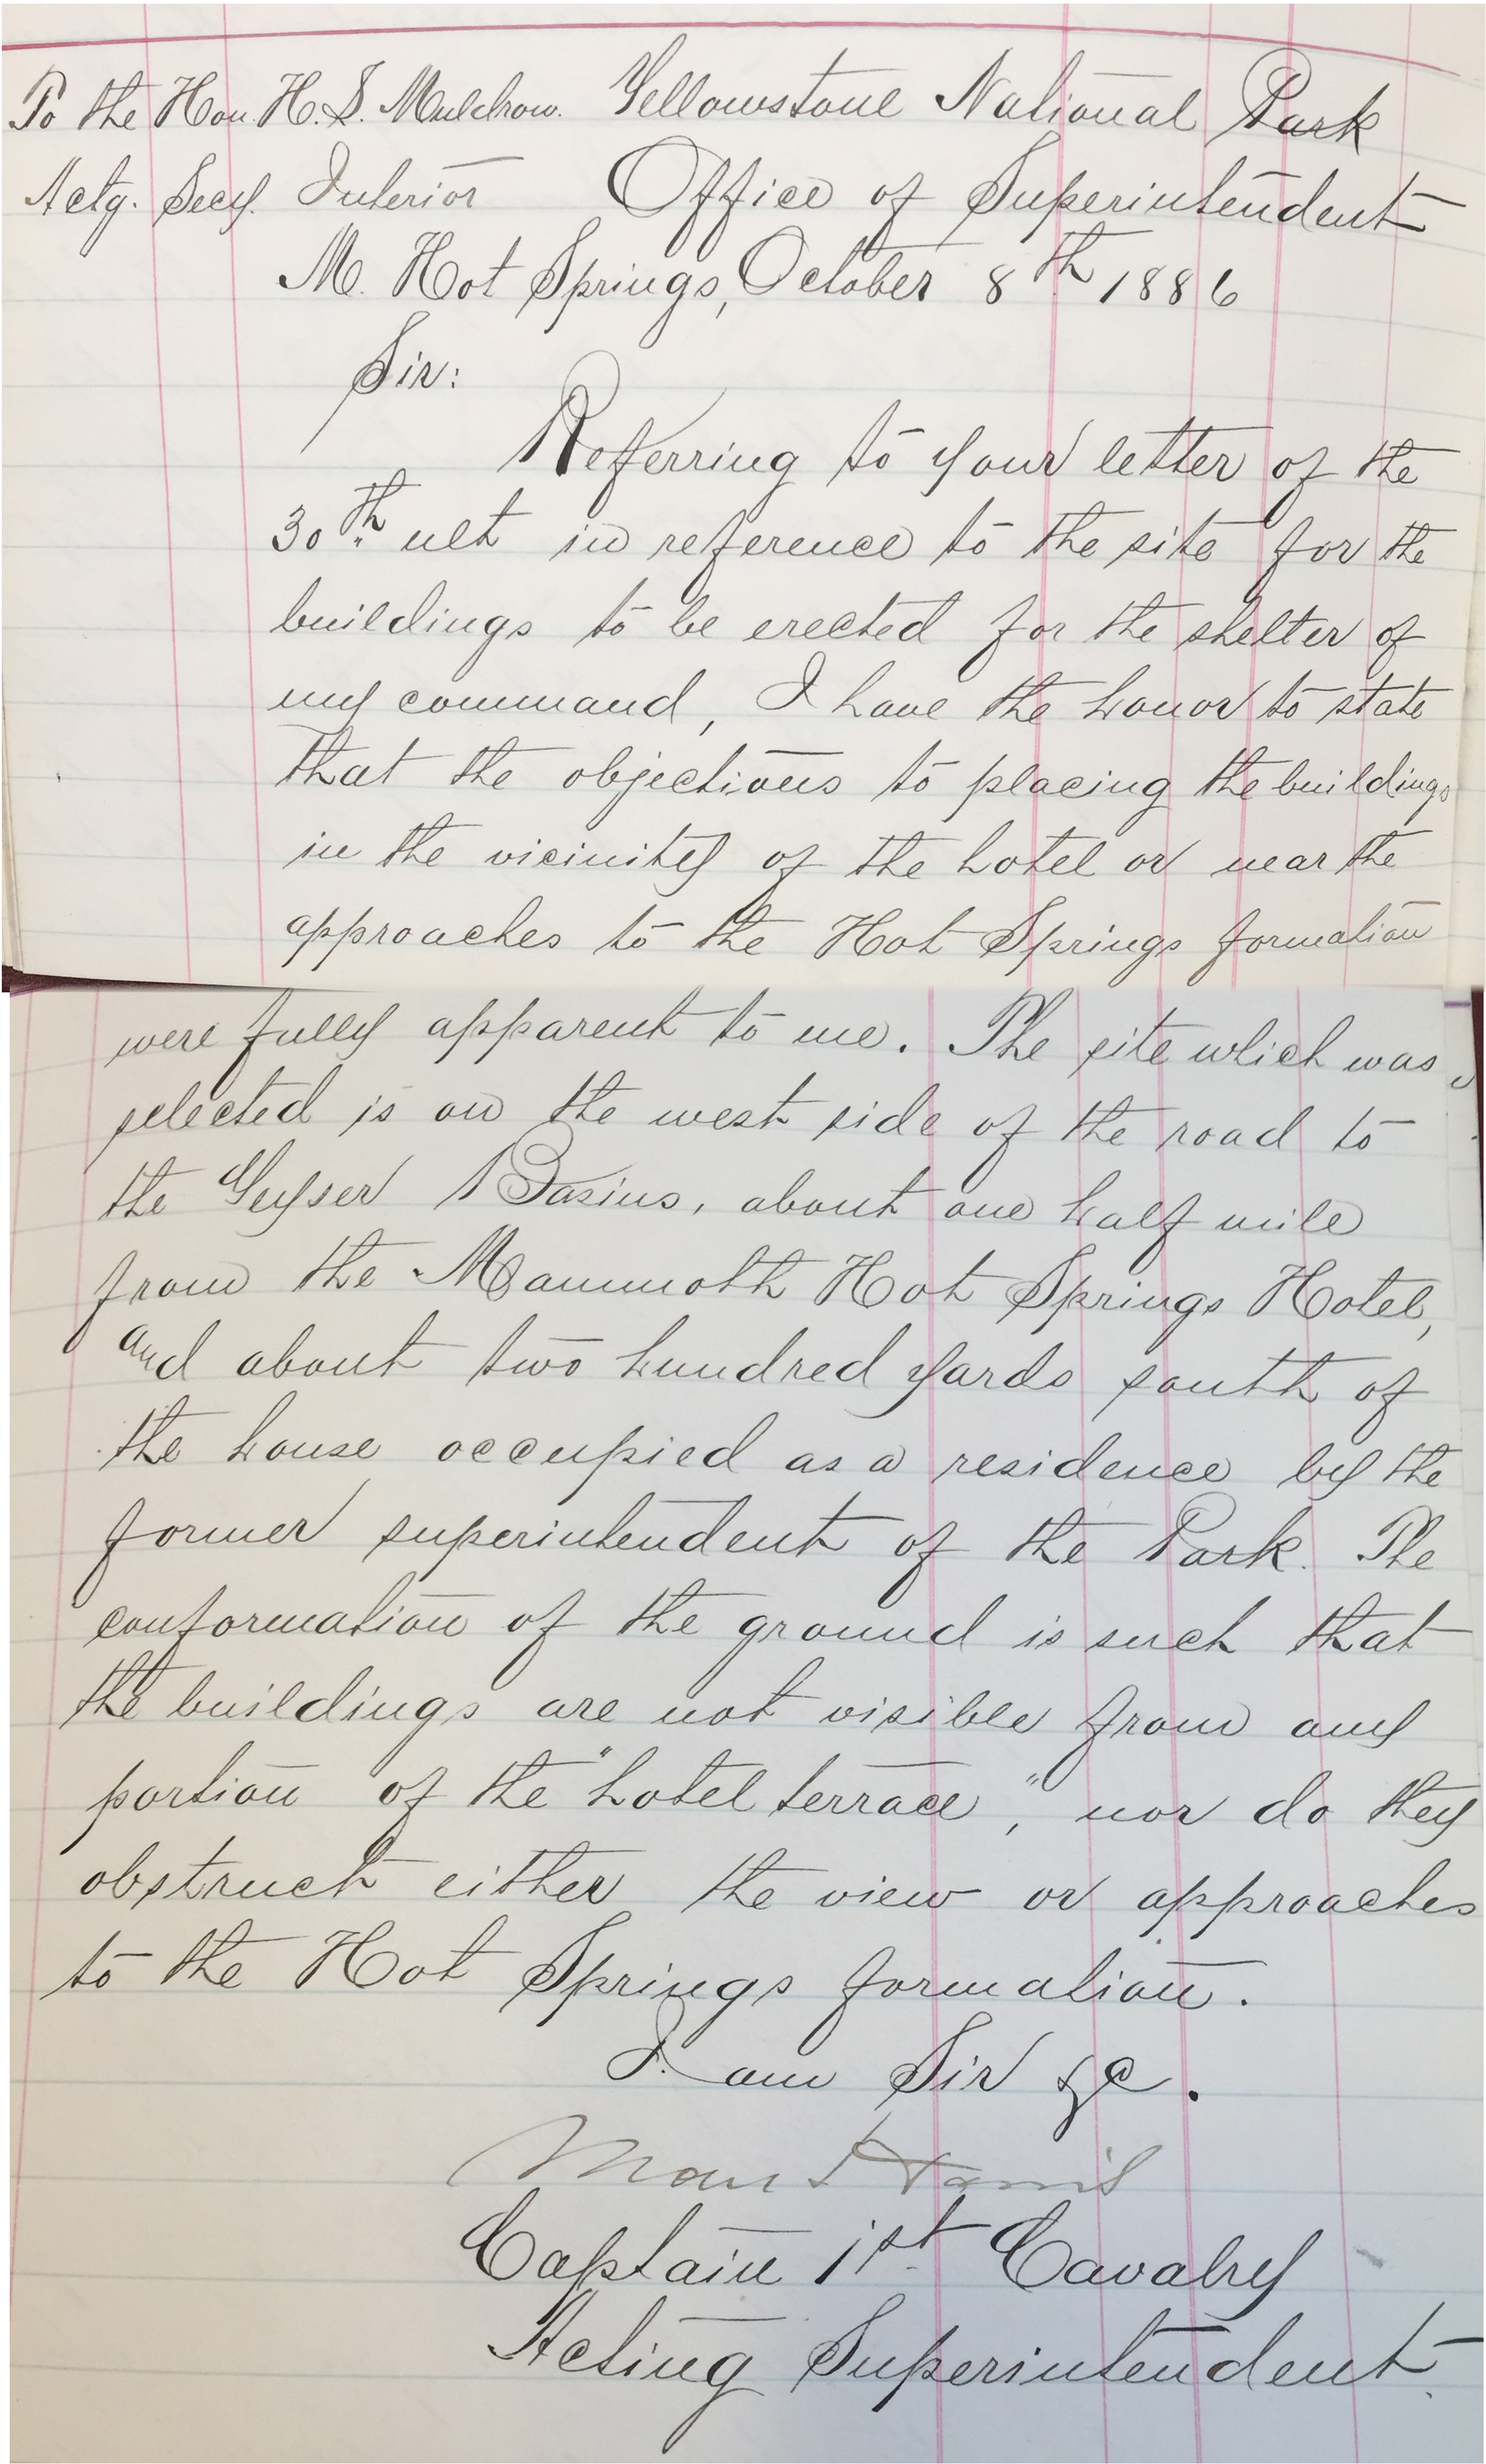 To the Hon. H. L. Muldrow. Yellowstone National Park
Actg. Secy. Interior Office of Superintendent
M. Hot Springs, October 8th 1886
Sir:
Referring to your letter of the
30th ult in reference to the site for the
buildings to be erected for the shelter of
my command, I have the honor to state
that the objections to placing the buildings
in the vicinity of the hotel or near the
approaches to the Hot Springs formation
were fully apparent to me. The site which was
selected is on the west side of the road to
the Geyser Basins, about one half mile
from the Mammoth Hot Springs Hotel,
and about two hundred yards south of
the house occupied as a residence by the
former superintendent of the Park. The
conformation of the ground is such that
the buildings are not visible from any
portion of the "hotel terrace", nor do they
obstruct either the view or approaches
to the Hot Springs formation.
I am Sir &c.
Moses Harris
Captain 1st Cavalry
Acting Superintendent.